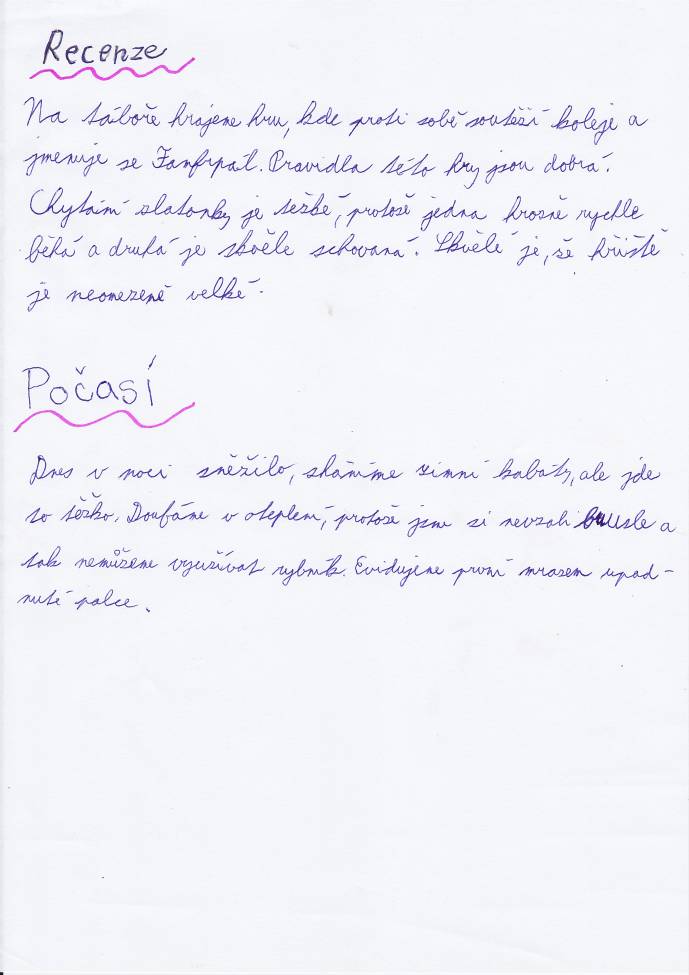 Recenze
Na táboře hrajeme hru, kde proti sobě soutěží koleje a
jmenuje se Famfrpál. Pravidla této hry jsou dobrá.
Chytání zlatonky je težké, protože jedna hrozně rychle
běhá a druhá je skvěle schovaná. Skvělé je, že hřiště
je neomezeně velké.
Počasí
Dnes v noci sněžilo, sháníme zimní kabáty, ale jde
to těžko. Doufáme v oteplení, protože jsme si nevzali brusle a
tak nemůžeme využívat rybník. Evidujeme první mrazem upad-
nuté palce.